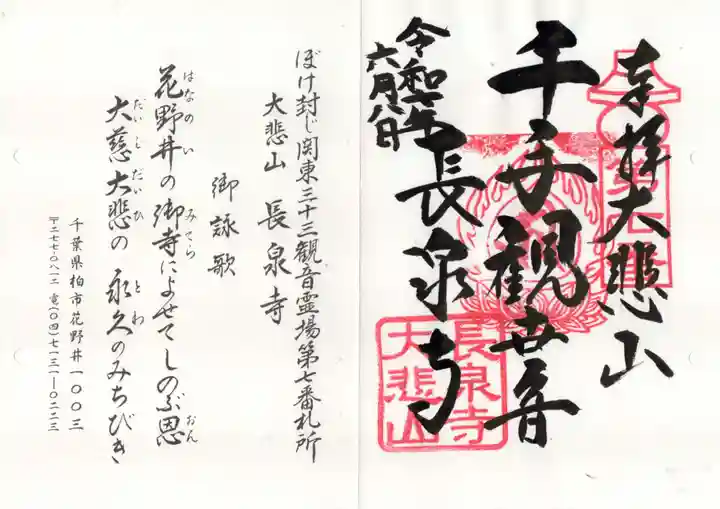 奉拝大悲山
千手観世音
長泉寺
令和七年
六月八日
第七番
長泉寺
大悲山
ぼけ封じ関東三十三観音霊場第七番札所
大悲山 長泉寺
御詠歌
花野井の御寺によせてしのぶ恩
はなのい みてら おん
大慈大悲の 永久のみちびき
だいじだいひ とわ
千葉県柏市花野井一〇〇三
〒二七七-〇八一二 電(〇四)七一三一-〇二二三